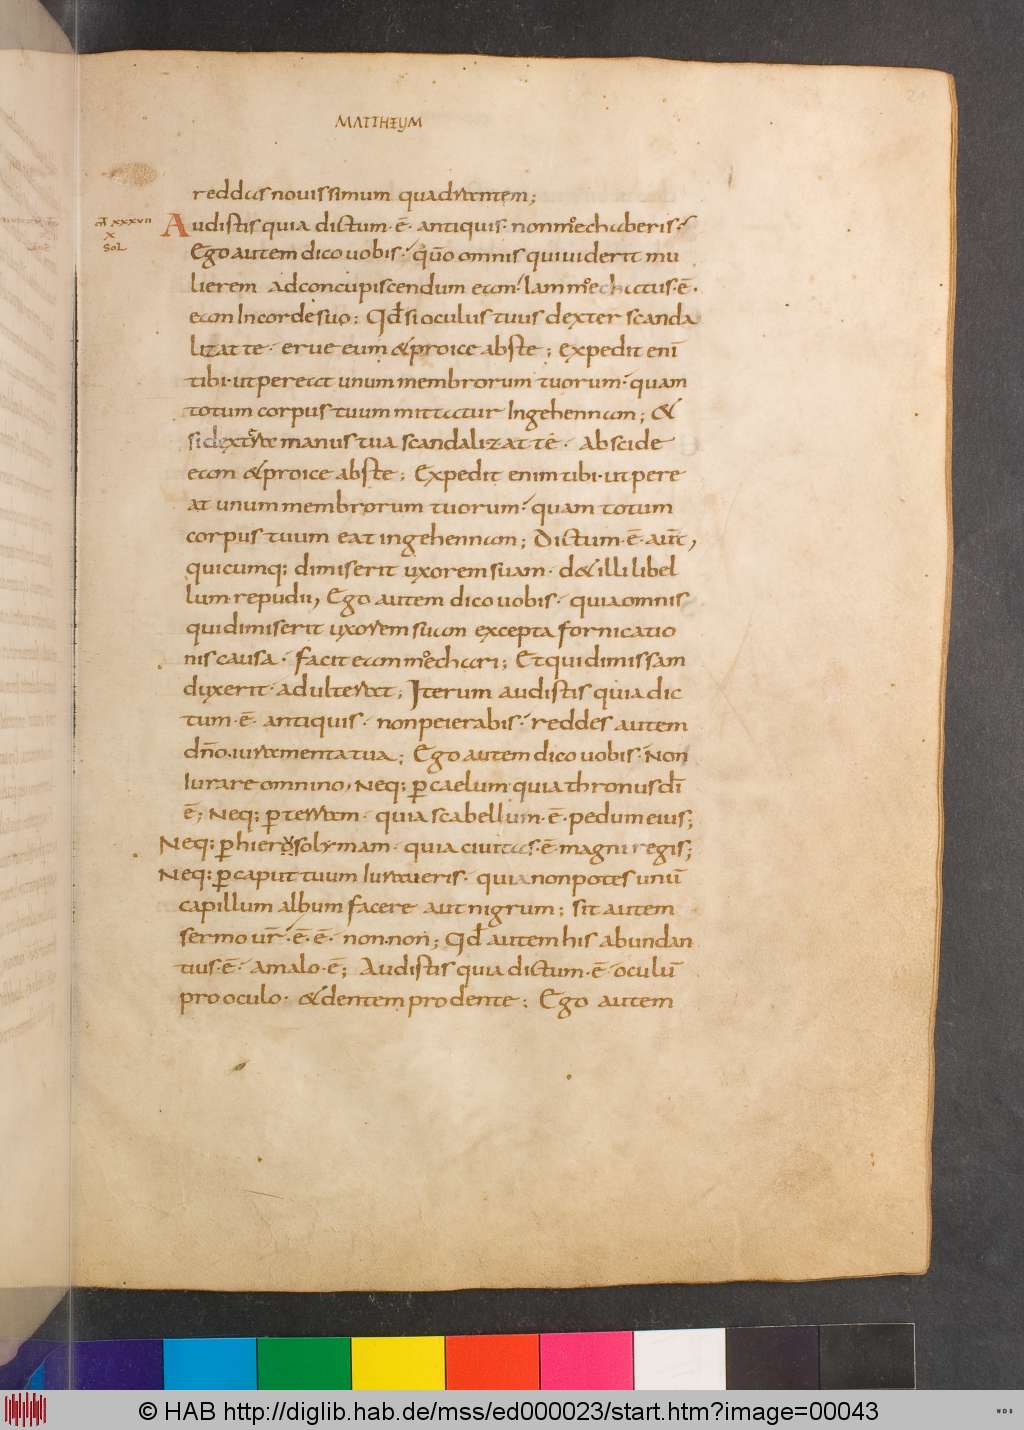 MATTHEUM
reddas nouissimum quadrantem;
mt xxxvii
x
Sol
Audistis quia dictum·ē· antiquis· nonmoechaberis·
Ego autem dico uobis· qnō omnis quiuiderit mu
lierem adconcupiscendum eam· Iam moechatus·ē·
eam Incordesuo; Qđ si oculus tuus dexter scanda
lizat te· erue eum &proice abste; expedit enī
tibi·utpereat unum membrorum tuorum· quam
totum corpus tuum mittatur Ingehennam; &
si dextra manus tua scandalizat te· Abscide
eam &proice abste; Expedit enim tibi·utpere
at unum membrorum tuorum· quam totum
corpus tuum eat ingehennam; Dictum·ē·aūt,
quicumq; dimiserit uxorem suam· d&illi libel
lum repudii, Ego autem dico uobis· quia omnis
qui dimiserit uxorem suam excepta fornicatio
nis causa· facit eam moechari; Et qui dimissam
duxerit· adulterat; Iterum audistis quia dic
tum·ē· antiquis· nonpeierabis· reddes autem
dño·iuramenta tua; Ego autem dico uobis· Non
Iurare omnino, Neq; ꝑ caelum quia thronus dī
ē; Neq; ꝑ terram· quia scabellum·ē·pedum eius;
Neq; ꝑ hierosolymam· quia ciuitas·ē·magni regis;
Neq; ꝑ caput tuum Iuraueris· quia non potes unū
capillum album facere aut nigrum; sit autem
sermo ur̄·ē·ē· non·non; Qđ autem his abundan
tius·ē· Amalo·ē; Audistis quia dictum·ē· oculū
pro oculo· &dentem pro dente; Ego autem
© HAB http://diglib.hab.de/mss/ed000023/start.htm?image=00043